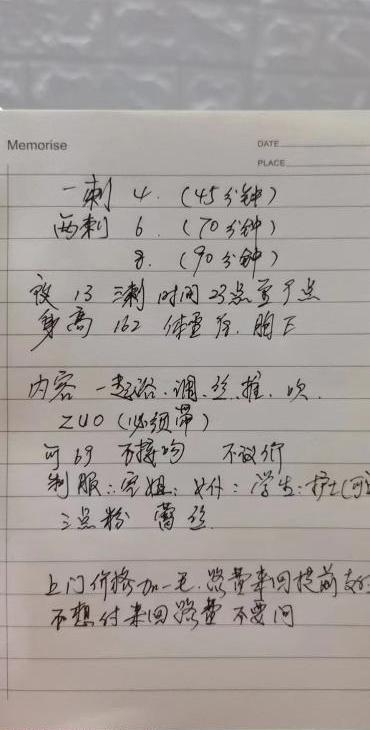 Memorise
DATE
PLACE
一刺 4. (45分钟)
两刺 6. (70分钟)
8. (90分钟)
夜 13 三刺 时间 23点至7点
身高 162 体重 胸 E
内容 一起浴.调.丝推.吹.
ZUO (必须带)
可 69 不接吻 不议价
制服:空姐:女仆:学生:护士(可
三点粉 蕾丝
上门价格加一毛.路费来回提前支付
不想付来回路费 不要问